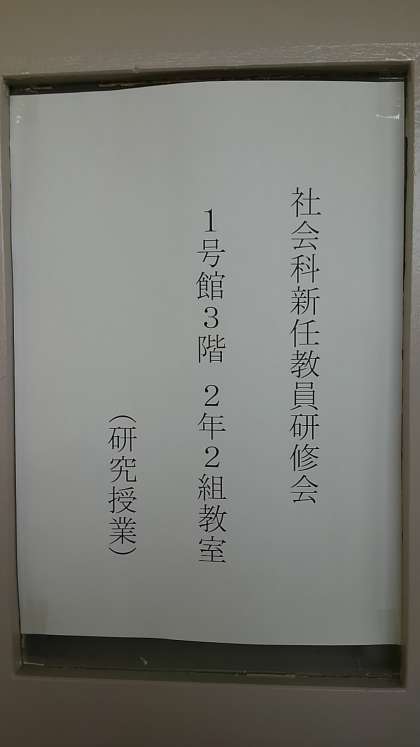 社会科新任教員研修会
1号館3階 2年2組教室
(研究授業)